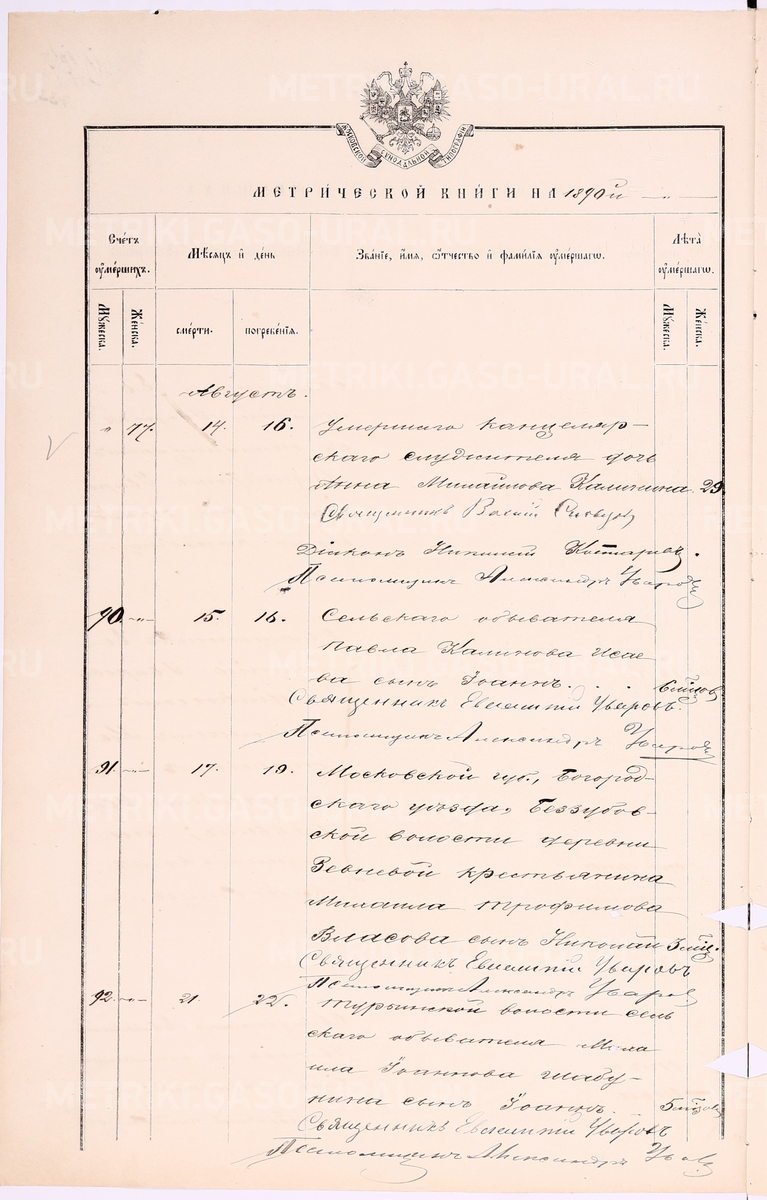 МОСКОВСКОЙ СѴНОДАЛЬНОЙ ТИПОГРАФІИ
МЕТРИЧЕСКОЙ КНИГИ НА 1890й
Счетъ оумершихъ.
Мѣсяцъ и день
Званіе, имя, ѿтчество и фамилія оумершагѡ.
Лѣта оумершагѡ.
Мужеска.
Женска.
смерти.
погребенія.
Мужеска.
Женска.
Августъ.
" 77. 14. 16. Умершаго канцеляр-
скаго служителя дочь
Анна Михайлова Калинина. 29
Священникъ
Діаконъ Николай
Псаломщикъ Александръ Уваровъ
90. -"- 15. 16. Сельскаго обывателя
Павла Калинова Исае
ва сынъ Іоаннъ. . .
Священникъ Евгений Уваровъ.
Псаломщикъ Александръ Уваровъ
91. -"- 17. 19. Московской губ., Богород-
скаго уѣзда, Беззубов-
ской волости деревни
Зевневой крестьянина
Михаила Трофимова
Власова сынъ Николай 3 мѣс.
Священникъ Евгений Уваровъ
Псаломщикъ Александръ Уваровъ
92. -"- 21. 22. Турьинской волости сель
скаго обывателя Миха
ила Іоаннова Шабу-
нина сынъ Іоаннъ.
Священникъ Евгений Уваровъ
Псаломщикъ Александръ Уваровъ
METRIKI.GASO-URAL.RU